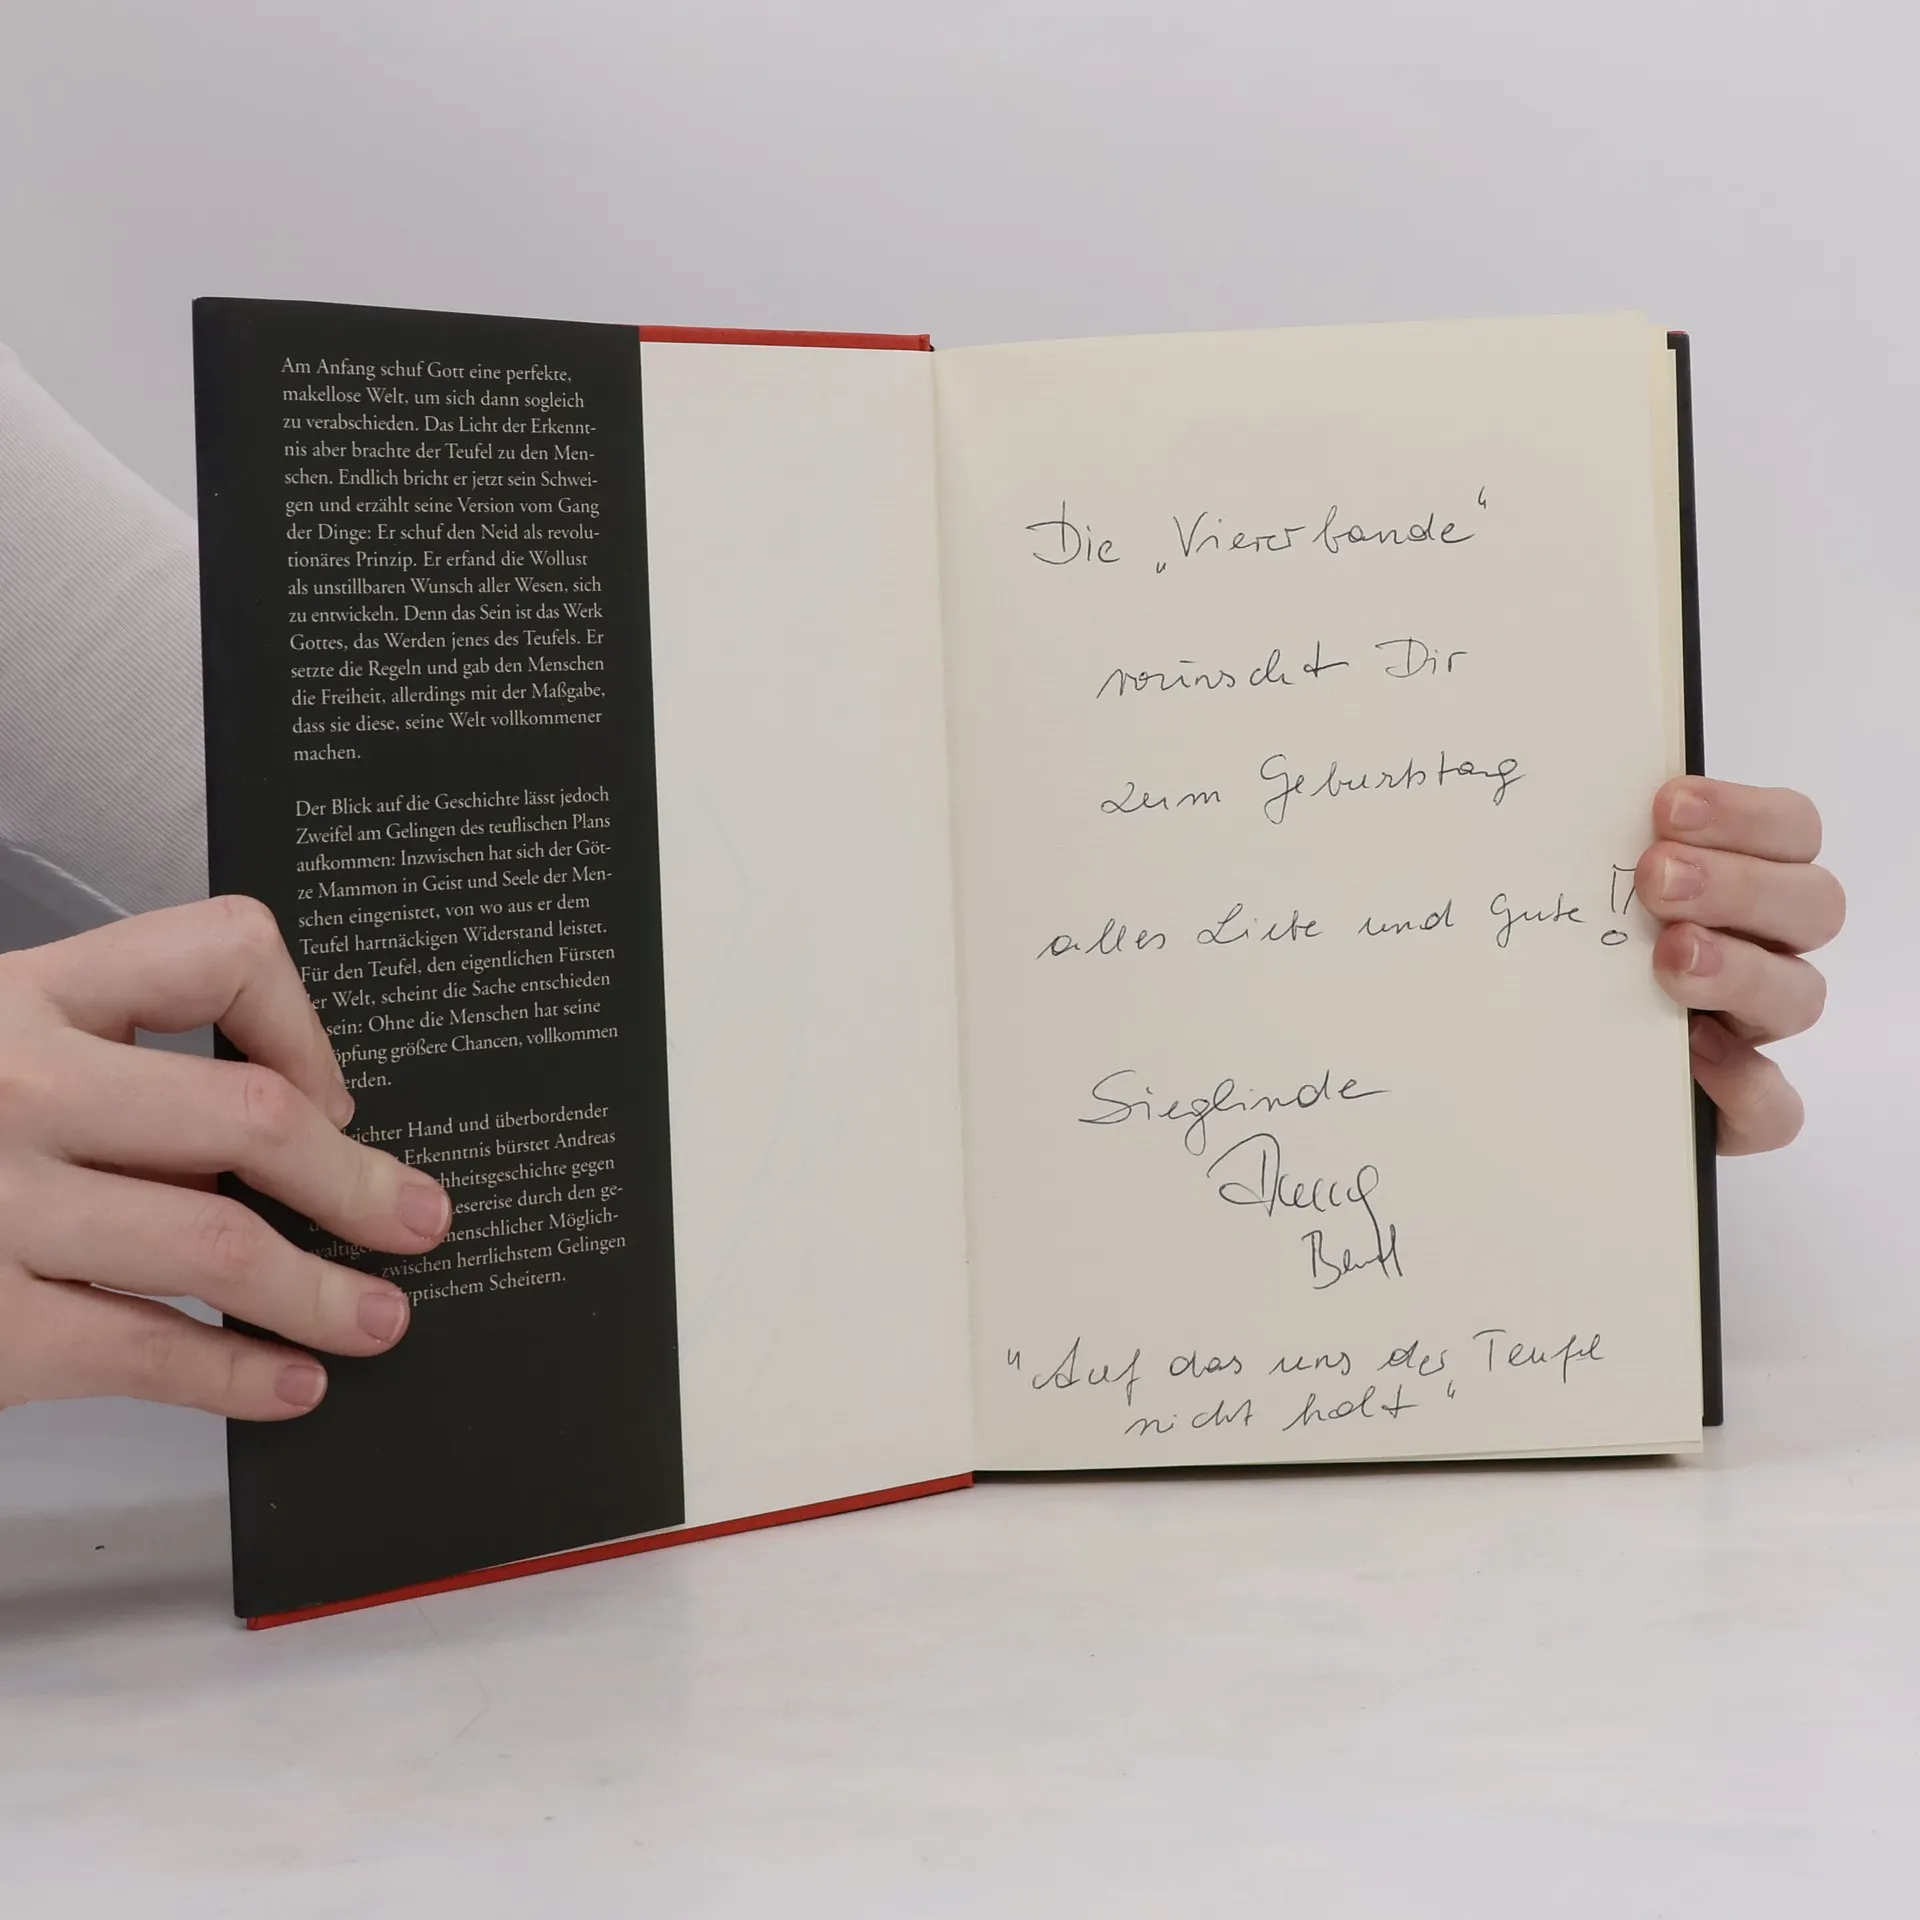 Am Anfang schuf Gott eine perfekte,
makellose Welt, um sich dann sogleich
zu verabschieden. Das Licht der Erkennt-
nis aber brachte der Teufel zu den Men-
schen. Endlich bricht er jetzt sein Schwei-
gen und erzählt seine Version vom Gang
der Dinge: Er schuf den Neid als revolu-
tionäres Prinzip. Er erfand die Wollust
als unstillbaren Wunsch aller Wesen, sich
zu entwickeln. Denn das Sein ist das Werk
Gottes, das Werden jenes des Teufels. Er
setzte die Regeln und gab den Menschen
die Freiheit, allerdings mit der Maßgabe,
dass sie diese, seine Welt vollkommener
machen.
Der Blick auf die Geschichte lässt jedoch
Zweifel am Gelingen des teuflischen Plans
aufkommen: Inzwischen hat sich der Göt-
ze Mammon in Geist und Seele der Men-
schen eingenistet, von wo aus er dem
Teufel hartnäckigen Widerstand leistet.
Für den Teufel, den eigentlichen Fürsten
er Welt, scheint die Sache entschieden
sein: Ohne die Menschen hat seine
öpfung größere Chancen, vollkommen
erden.
eichter Hand und überbordender
Erkenntnis bürstet Andreas
hheitsgeschichte gegen
Lesereise durch den ge-
waltige menschlicher Möglich-
zwischen herrlichstem Gelingen
yptischem Scheitern.
Die „Viererbande“
wünscht Dir
zum Geburtstag
alles Liebe und Gute!!
Sieglinde
"Auf das uns der Teufel
nicht holt"